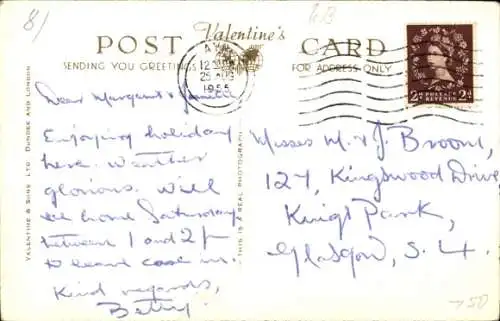 8/
WB
POST Valentine's CARD
SENDING YOU GREETINGS FOR ADDRESS ONLY
AYR
25 AUG
1955
POSTAGE REVENUE
2D 2D
Dear Margaret &
Enjoying holiday
here. Weather
glorious. Will
be home Saturday
between 1 and 2 p
to leave case in.
Kind regards,
Betty.
Misses M. & J. Broom,
127, Kingswood Drive,
King's Park,
Glasgow, S. 4.
VALENTINE & SONS LTD. DUNDEE AND LONDON
THIS IS A REAL PHOTOGRAPH